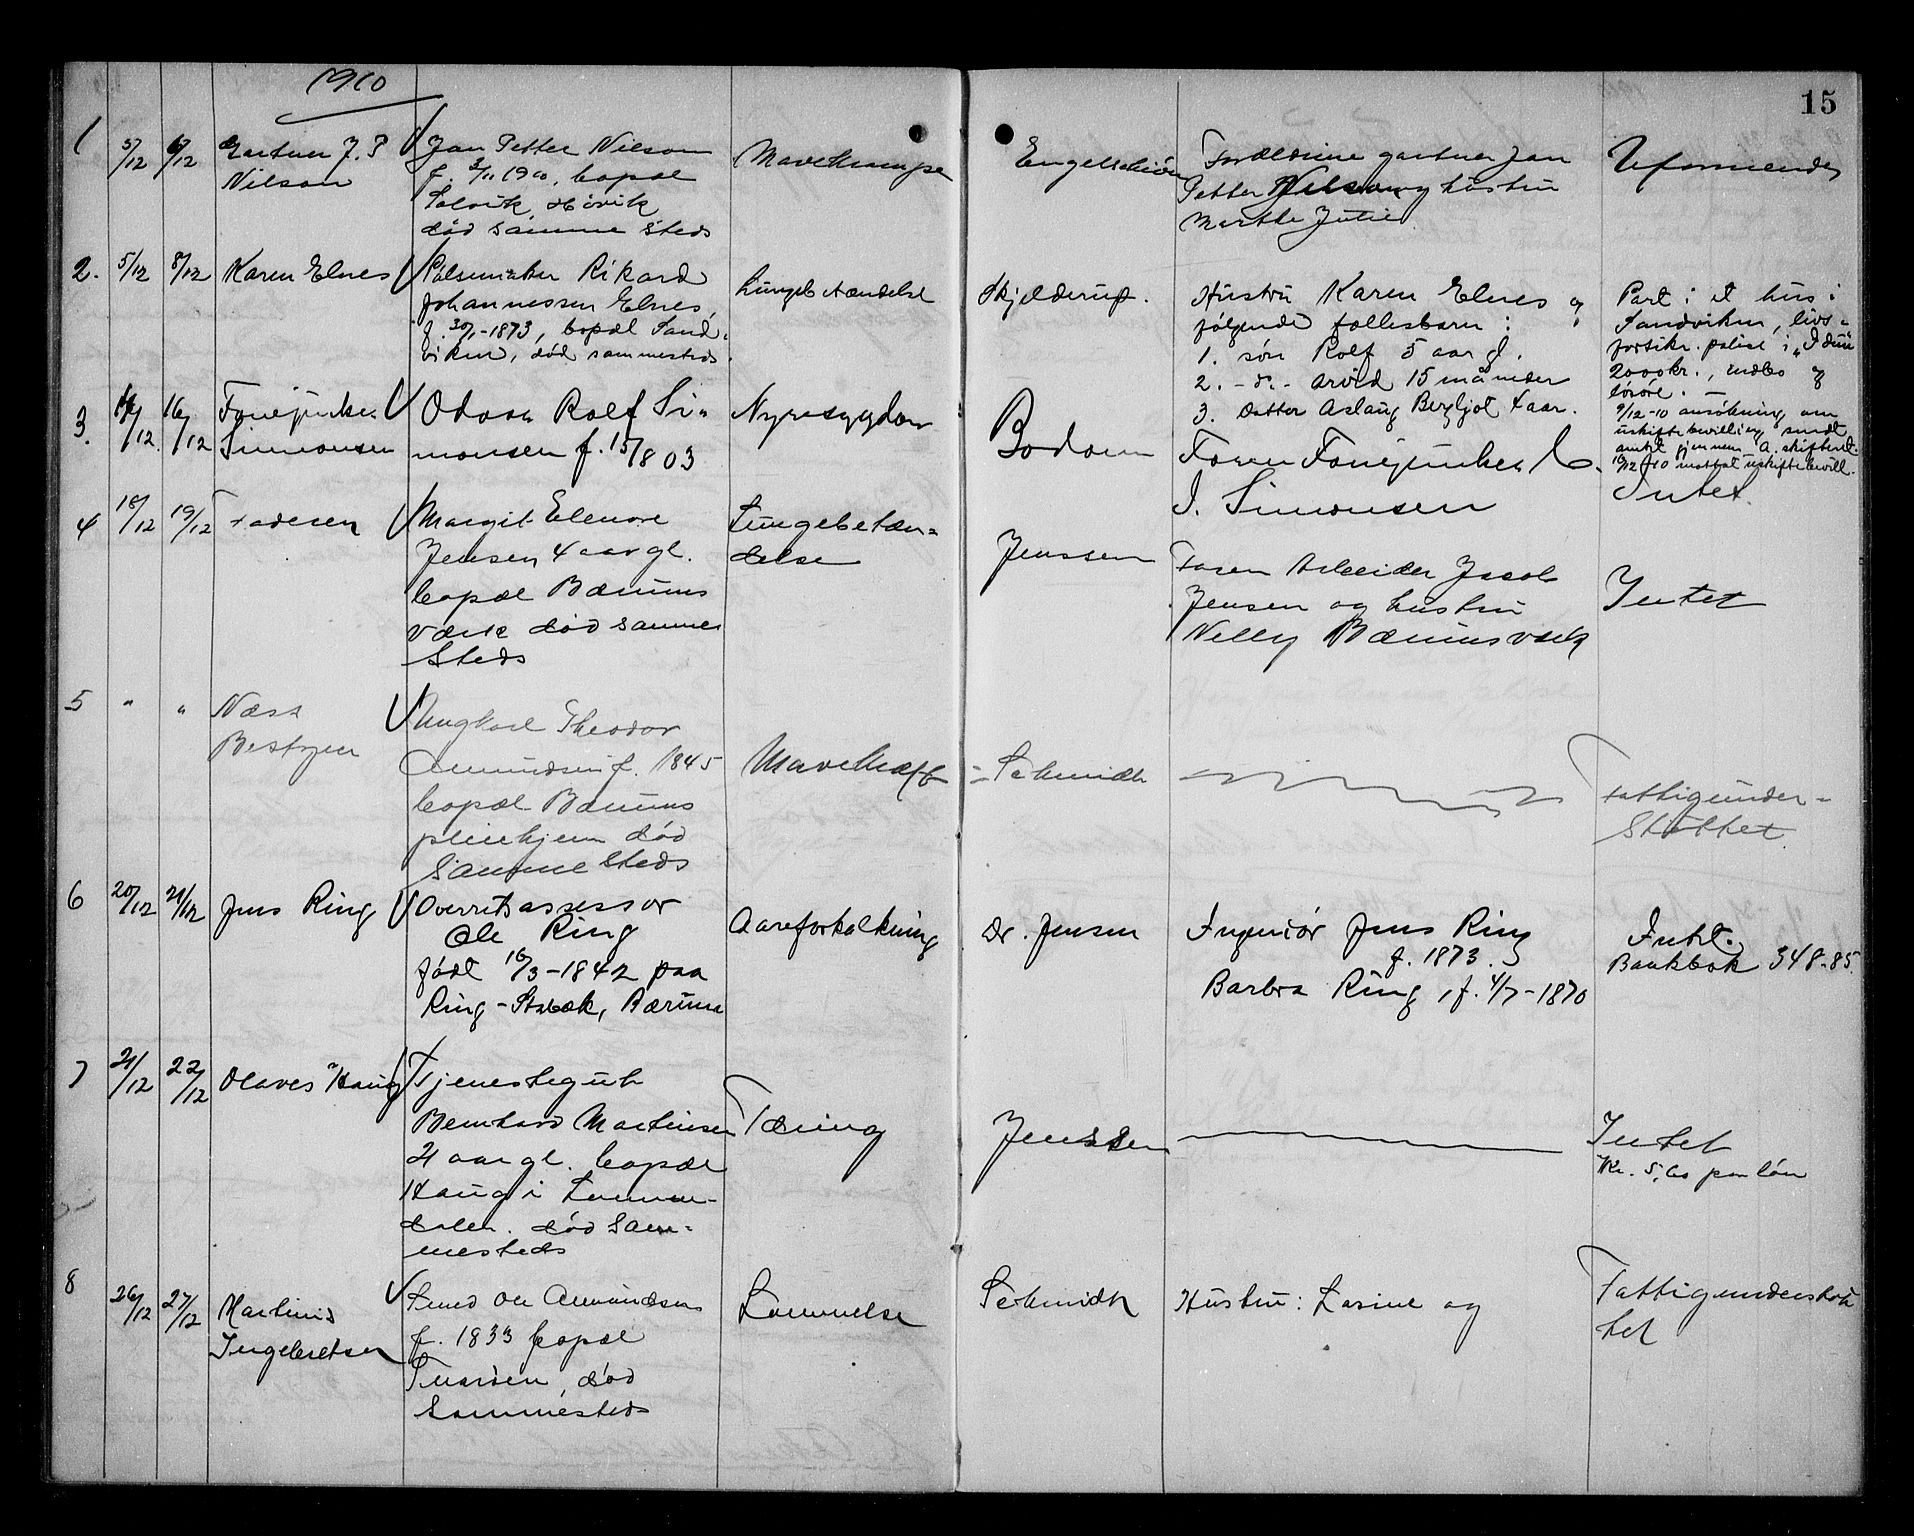 1910
15
1 5/12 6/12 Gartner J. P
Nilson
Jan Petter Nilson
f. 3/11 1900, bopæl
Solvik, Høvik
død samme steds
Mavekrampe
Engelschiøn
Forældrene gartner Jan
Petter Nilson og hustru
Marthe Julie
Uformuende
2. 5/12 8/12 Karen Elnes
Pølsemaker Rikard
Johannessen Elnes,
f. 30/1-1873, bopæl Sand-
viken, død sammesteds.
Lungebetændelse
Skjelderup.
Hustru Karen Elnes og
følgende fællesbarn:
1. søn Rolf 5 aar gl.
2. - do - Arvid 15 måneder
3. datter Aslaug Bergljot 4 aar.
Part i et hus i
Sandviken, livs-
forsikr. police i "Idun"
2000 kr., indbo og
løsøre. -
9/12-10 ansøkning om
uskiftebevilling sendt
amtet gjennem A. skifteret.
16/12-10 mottat uskiftebevill.
3. 16/12 Fanejunker
Simonsen
Oskar Rolf Si-
monsen f. 15/8 03
Nyresygdom
Bodom
Faren Fanejunker C.
J. Simonsen
Intet.
4 18/12 19/12 Faderen
Margit Elenore
Jensen 4 aar gl.
bopæl Bærums
værk død samme
steds
Lungebetæn-
delse
Jenssen
Faren Arbeider Jacob
Jensen og hustru
Nelly Bærumsværk
Intet
5 " " Næss
Bestyrer
Ungkarl Theodor
Amundsen f. 1845
bopæl Bærums
pleiehjem død
samme steds
Mavekræft
Schmidt
Fattigunder-
støttet
6 20/12 21/12 Jens Ring
Overretsassessor
Ole Ring
født 16/3-1842 paa
Ring - Stabæk, Bærum
Aareforkalkning
Dr. Jensen
Ingeniør Jens Ring
f. 1873.
Barbra Ring, f. 4/7-1870
Intet.
Bankbok 348.85.
7 21/12 22/12 Olaves Haug
Tjenestegut
Bernhard Martinsen
21 aar gl. bopæl
Haug i Lommen-
dalen. død sam-
mesteds
Tæring
Jenssen
Intet
Kr. 5,00 paa løn
8 26/12 27/12 Martinus
Ingebretsen
Smed Ole Amundsen
f. 1833 bopæl
død
sammesteds
Lammelse
Schmidt
Hustru: Larine og
Fattigunderstøt
tet